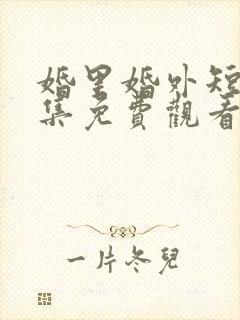 婚里婚外短
集免費觀看
一片冬兒